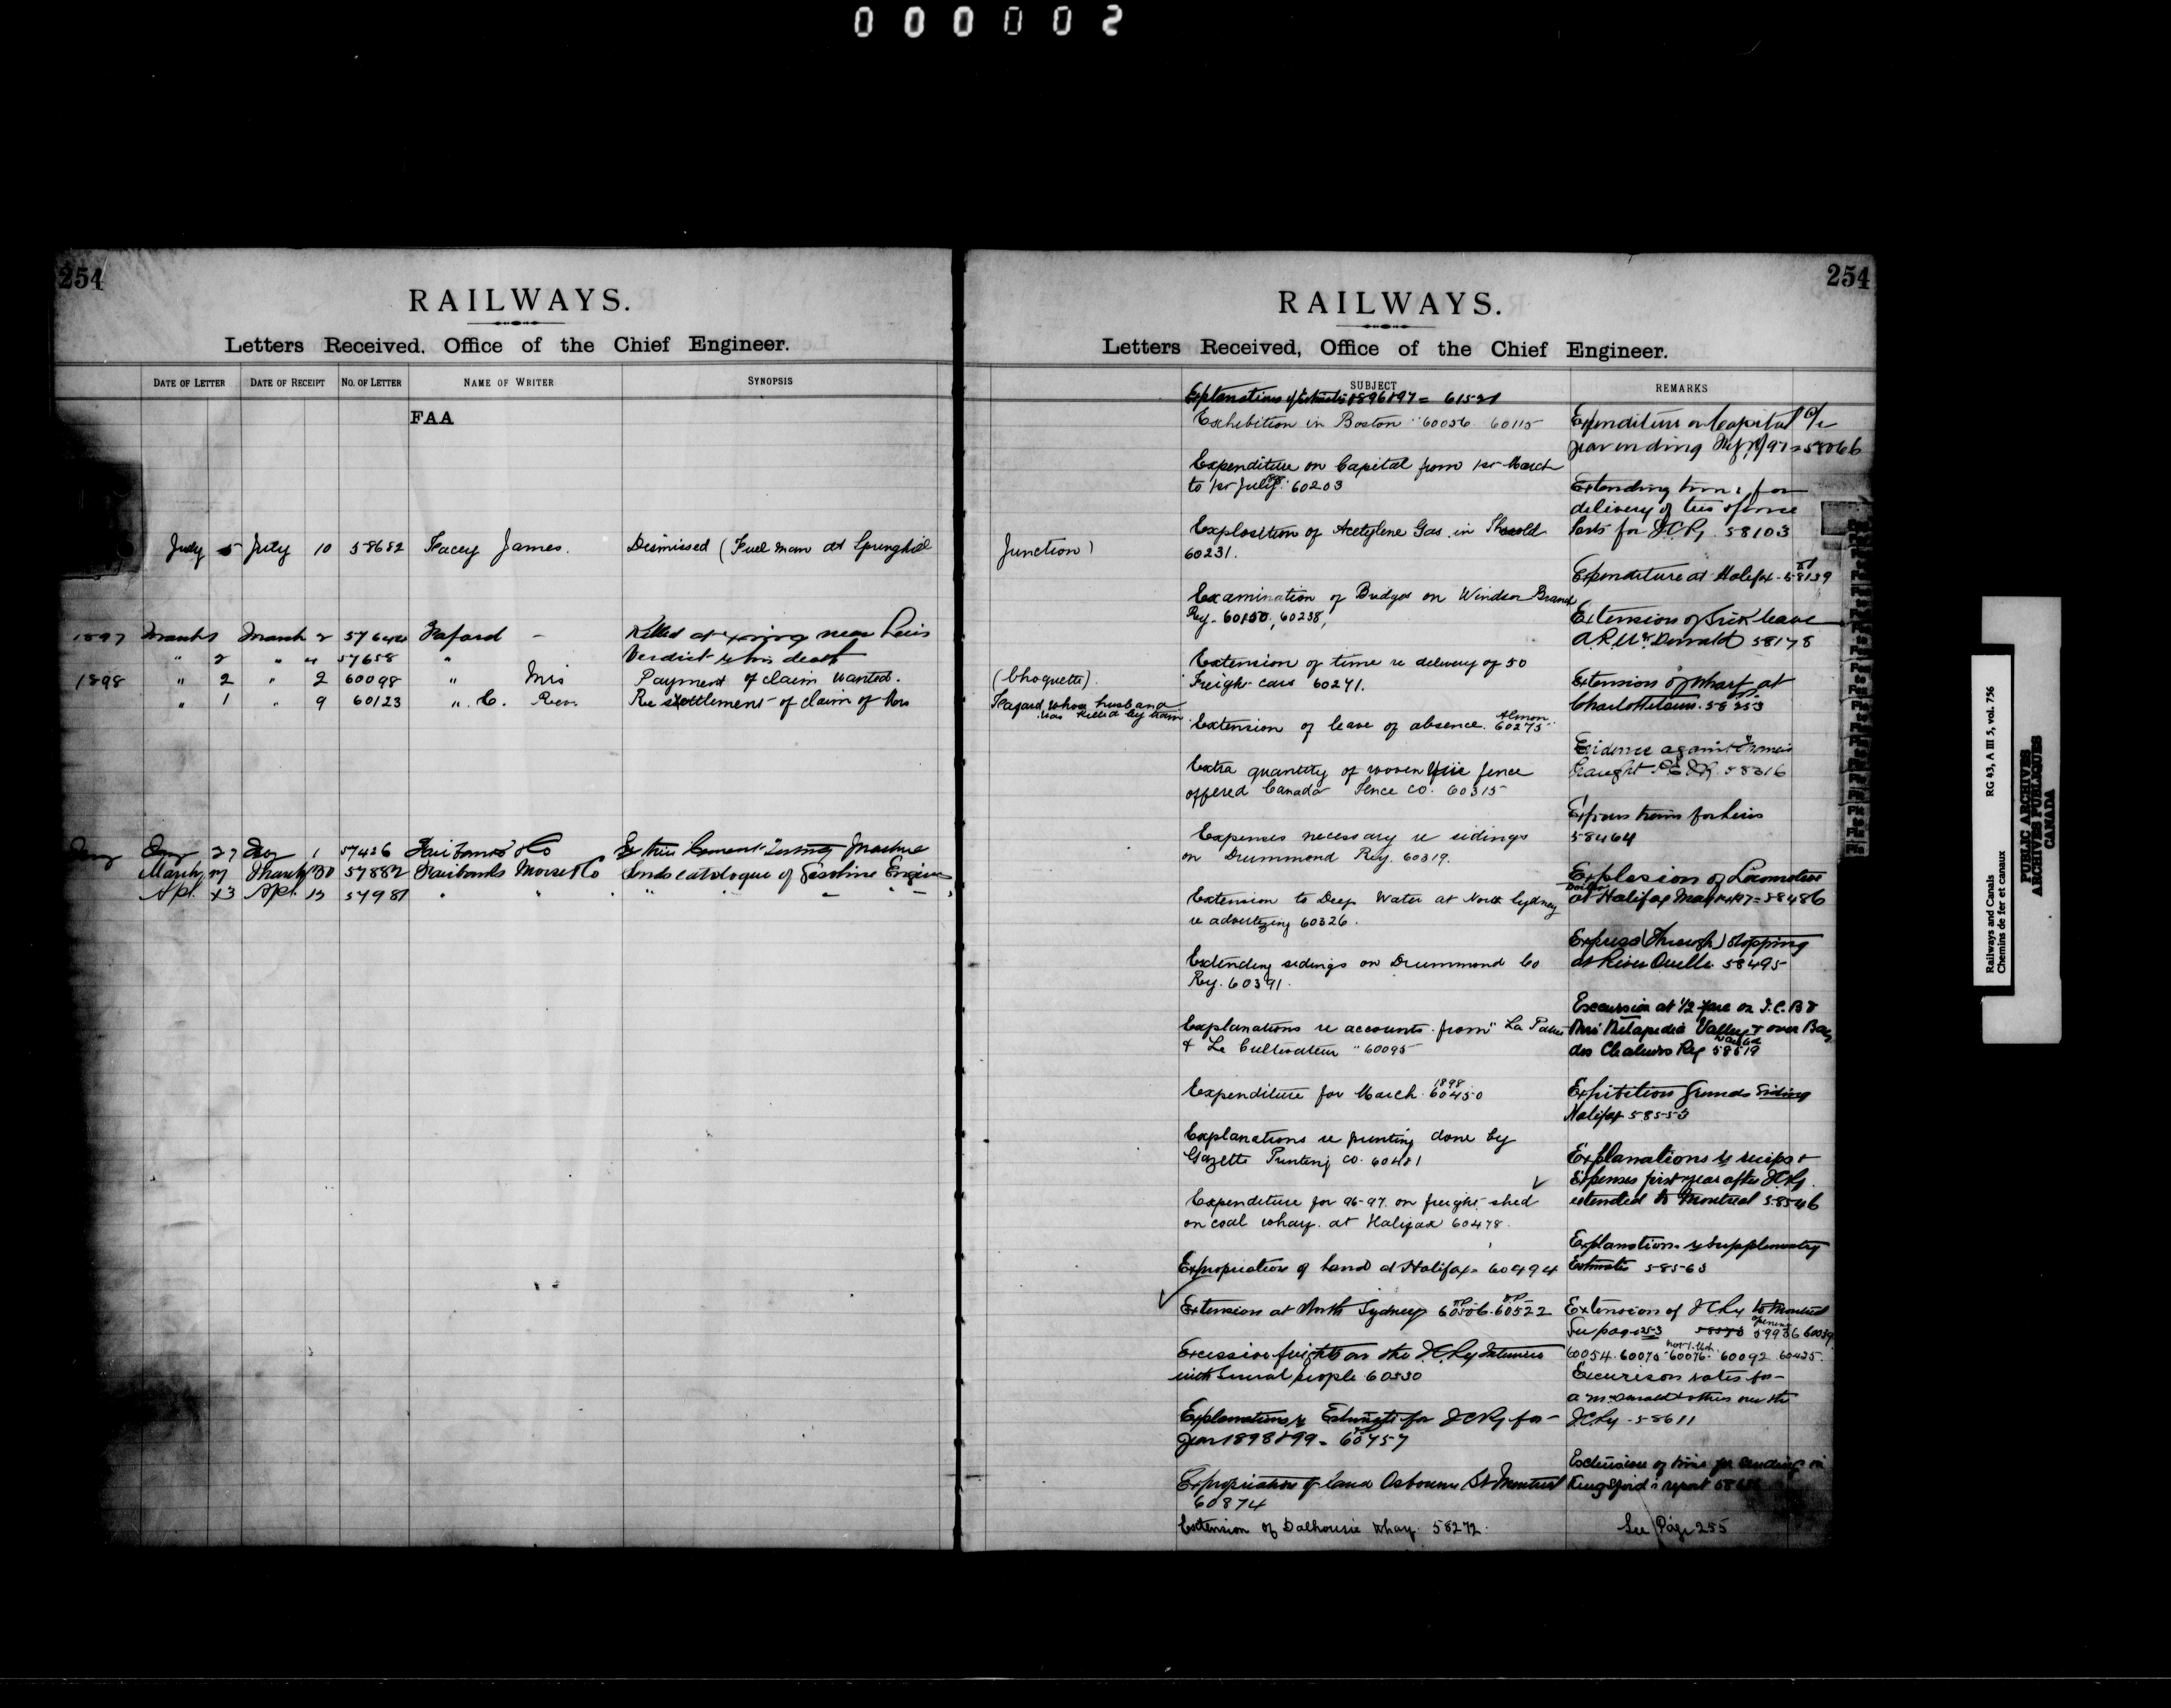 000002
254
RAILWAYS.
Letters Received, Office of the Chief Engineer.
DATE OF LETTER DATE OF RECEIPT NO. OF LETTER NAME OF WRITER SYNOPSIS
FAA
July 5 July 10 58652 Facey James. Dismissed (Fuel man at Springhill
1897 March 1 March 2 57642 Faford - Killed at Xing near Levis
" 2 " 4 57658 " Verdict re his death
1898 " 2 " 2 60098 " Mrs Payment of claim wanted.
" 1 " 9 60123 " C. Rev. Re settlement of claim of Mrs
27 1 57426 Fairbanks & Co Cement Testing Machine
March March 57882 Fairbanks Morse & Co Sends catalogue of Gasoline Engines
Apl. 13 Apl. 57981 " " " "
254
RAILWAYS.
Letters Received, Office of the Chief Engineer.
SUBJECT REMARKS
Junction)
(Choquette).
Faford, whose husband
was killed by train.
Explanations of Estimates 1896 & 97 = 61521
Exhibition in Boston 60056 60115
Expenditure on Capital from 1st March
to 1st July 60203
Explosition of Acetylene Gas in Thorold
60231.
Examination of Bridges on Windsor Branch
Ry. 60150, 60238,
Extension of time re delivery of 50
Freight cars 60271.
Extension of leave of absence. Almon 60275
Extra quantity of woven wire fence
offered Canada Fence Co. 60315
Expenses necessary re sidings
on Drummond Ry. 60319.
Extension to Deep Water at North Sydney
re advertizing 60326.
Extending sidings on Drummond Co
Ry. 60391.
Explanations re accounts from "La Patrie
& Le Cultivateur" 60095
Expenditure for March 1898 60450
Explanations re printing done by
Gazette Printing Co. 60481
Expenditure for 96-97 on freight shed
on coal wharf at Halifax 60478.
Expropriation of land at Halifax = 60494
Extension at North Sydney 60506. 60522
Excessive freights on the I.C.Ry Interviews
with several people 60530
Explanations re Estimates for I C Ry for
year 1898 & 99 = 60757
Expropriation of land Osborne St Montreal
60874
Extension of Dalhousie Wharf. 58272.
Expenditure on Capital a/c
year ending 97 = 58066
Extending time for
delivery of
for I.C.Ry. 58103
Expenditure at Halifax - 58139
Extension of sick leave
A.R. McDonald 58178
Extension of wharf at
Charlottetown. 58253
Evidence against Francis
58316
Express trains for Levis
58464
Explosion of Locomotive
Boiler at Halifax May = 58486
Express (through) stopping
at River Ouelle. 58495
Excursion at 1/2 fare on I.C.R &
thro' Metapedia Valley & over Baie
des Chaleurs Ry wanted 58519
Exhibition Grounds Siding
Halifax 58553
Explanations re receipts &
Expenses first year after I C Ry.
extended to Montreal 58546
Explanations re Supplementary
Estimates 58563
Extension of I C Ry to Montreal
See page 253 opening 59936 60039
60054. 60075 60076. 60092 60435.
Excursion rates for
A McDonald & others over the
I.C.Ry - 58611
Extension of time for sending in
Kingsford's report
See Page 255
Railways and Canals RG 43, A III 5, vol. 756
Chemins de fer et canaux
PUBLIC ARCHIVES
ARCHIVES PUBLIQUES
CANADA